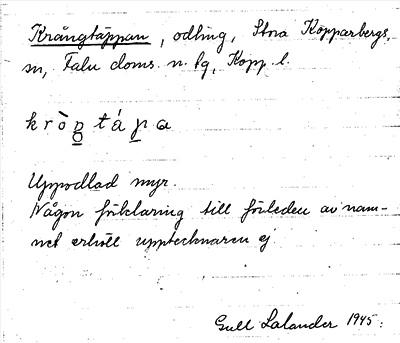 Krångtäppan, odling, Stora Kopparbergs
sn, Falu doms. n. tg, Kopp. l.
Uppodlad myr.
Någon förklaring till förleden av nam-
net erhöll upptecknaren ej.
Gull Lalander 1945.